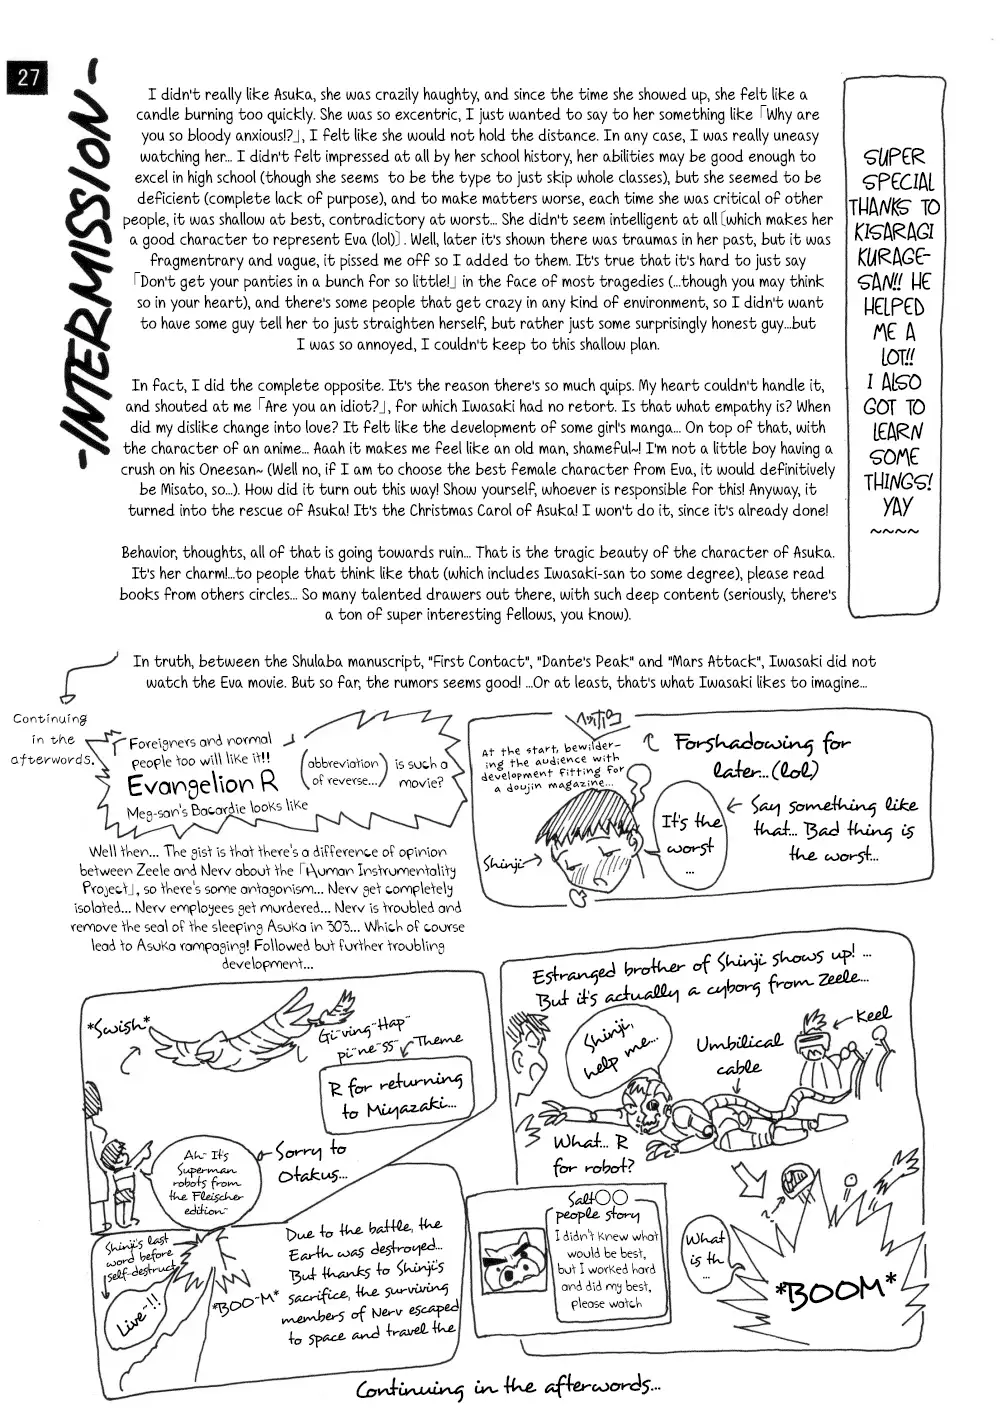 27
-INTERMISSION-
I didn't really like Asuka, she was crazily haughty, and since the time she showed up, she felt like a
candle burning too quickly. She was so excentric, I just wanted to say to her something like「Why are
you so bloody anxious!?」, I felt like she would not hold the distance. In any case, I was really uneasy
watching her... I didn't felt impressed at all by her school history, her abilities may be good enough to
excel in high school (though she seems to be the type to just skip whole classes), but she seemed to be
deficient (complete lack of purpose), and to make matters worse, each time she was critical of other
people, it was shallow at best, contradictory at worst... She didn't seem intelligent at all[which makes her
a good character to represent Eva (lol)]. Well, later it's shown there was traumas in her past, but it was
fragmentrary and vague, it pissed me off so I added to them. It's true that it's hard to just say
「Don't get your panties in a bunch for so little!」 in the face of most tragedies (...though you may think
so in your heart), and there's some people that get crazy in any kind of environment, so I didn't want
to have some guy tell her to just straighten herself, but rather just some surprisingly honest guy...but
I was so annoyed, I couldn't keep to this shallow plan.
In fact, I did the complete opposite. It's the reason there's so much quips. My heart couldn't handle it,
and shouted at me「Are you an idiot?」, for which Iwasaki had no retort. Is that what empathy is? When
did my dislike change into love? It felt like the development of some girl's manga... On top of that, with
the character of an anime... Aaah it makes me feel like an old man, shameful~! I'm not a little boy having a
crush on his Oneesan~ (Well no, if I am to choose the best female character from Eva, it would definitively
be Misato, so...). How did it turn out this way! Show yourself, whoever is responsible for this! Anyway, it
turned into the rescue of Asuka! It's the Christmas Carol of Asuka! I won't do it, since it's already done!
Behavior, thoughts, all of that is going towards ruin... That is the tragic beauty of the character of Asuka.
It's her charm!...to people that think like that (which includes Iwasaki-san to some degree), please read
books from others circles... So many talented drawers out there, with such deep content (seriously, there's
a ton of super interesting fellows, you know).
In truth, between the Shulaba manuscript, "First Contact", "Dante's Peak" and "Mars Attack", Iwasaki did not
watch the Eva movie. But so far, the rumors seems good! ...Or at least, that's what Iwasaki likes to imagine...
SUPER
SPECIAL
THANKS TO
KISARAGI
KURAGE-
SAN!! HE
HELPED
ME A
LOT!!
I ALSO
GOT TO
LEARN
SOME
THINGS!
YAY
~~~~
Continuing
in the
afterwords.
Foreigners and normal
people too will like it!!
Evangelion R
Meg-san's Bacardie looks like
(abbreviation
of reverse...)
is such a
movie?
At the start, bewilder-
ing the audience with
development fitting for
a doujin magazine...
Forshadowing for
later...(lol)
It's the
worst
...
Say something like
that... Bad thing is
the worst...
Shinji
Well then... The gist is that there's a difference of opinion
between Zeele and Nerv about the「Human Instrumentality
Project」, so there's some antagonism... Nerv get completely
isolated... Nerv employees get murdered... Nerv is troubled and
remove the seal of the sleeping Asuka in 303... Which of course
lead to Asuka rampaging! Followed but further troubling
development...
Estranged brother of Shinji shows up! ...
But it's actually a cyborg from Zeele...
Shinji,
help me...
Umbilical
cable
Keel
What... R
for robot?
*Swish*
Gi~ving~Hap~
pi~ne~ss~
Theme
R for returning
to Miyazaki...
Ah~ It's
Superman
robots from
the Fleischer
edition~
Sorry to
Otakus...
Salt〇〇
people story
I didn't knew what
would be best,
but I worked hard
and did my best,
please watch
What
is th
...
*BOOM*
Shinji's last
word before
self-destruct
Live~!!
*BOO~M*
Due to the battle, the
Earth was destroyed...
But thanks to Shinji's
sacrifice, the surviving
members of Nerv escaped
to space and travel the
Continuing in the afterwords...